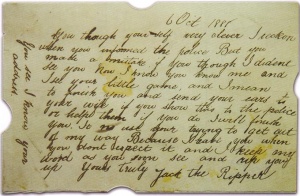 6 Oct 1888
You though your self very clever I reckon
when you informed the police But you
made a mistake if you though I dident
see you Now I know you know me and
I see your little game, and I mean
to finish you and send your ears to
your wife if you show this to the police
or help them if you do I will finish
you. It no use your trying to get out
of my way Because I have you when
you dont expect it and I keep my
word as you soon see and rip you
up Yours truly Jack the Ripper
You see I know your
address